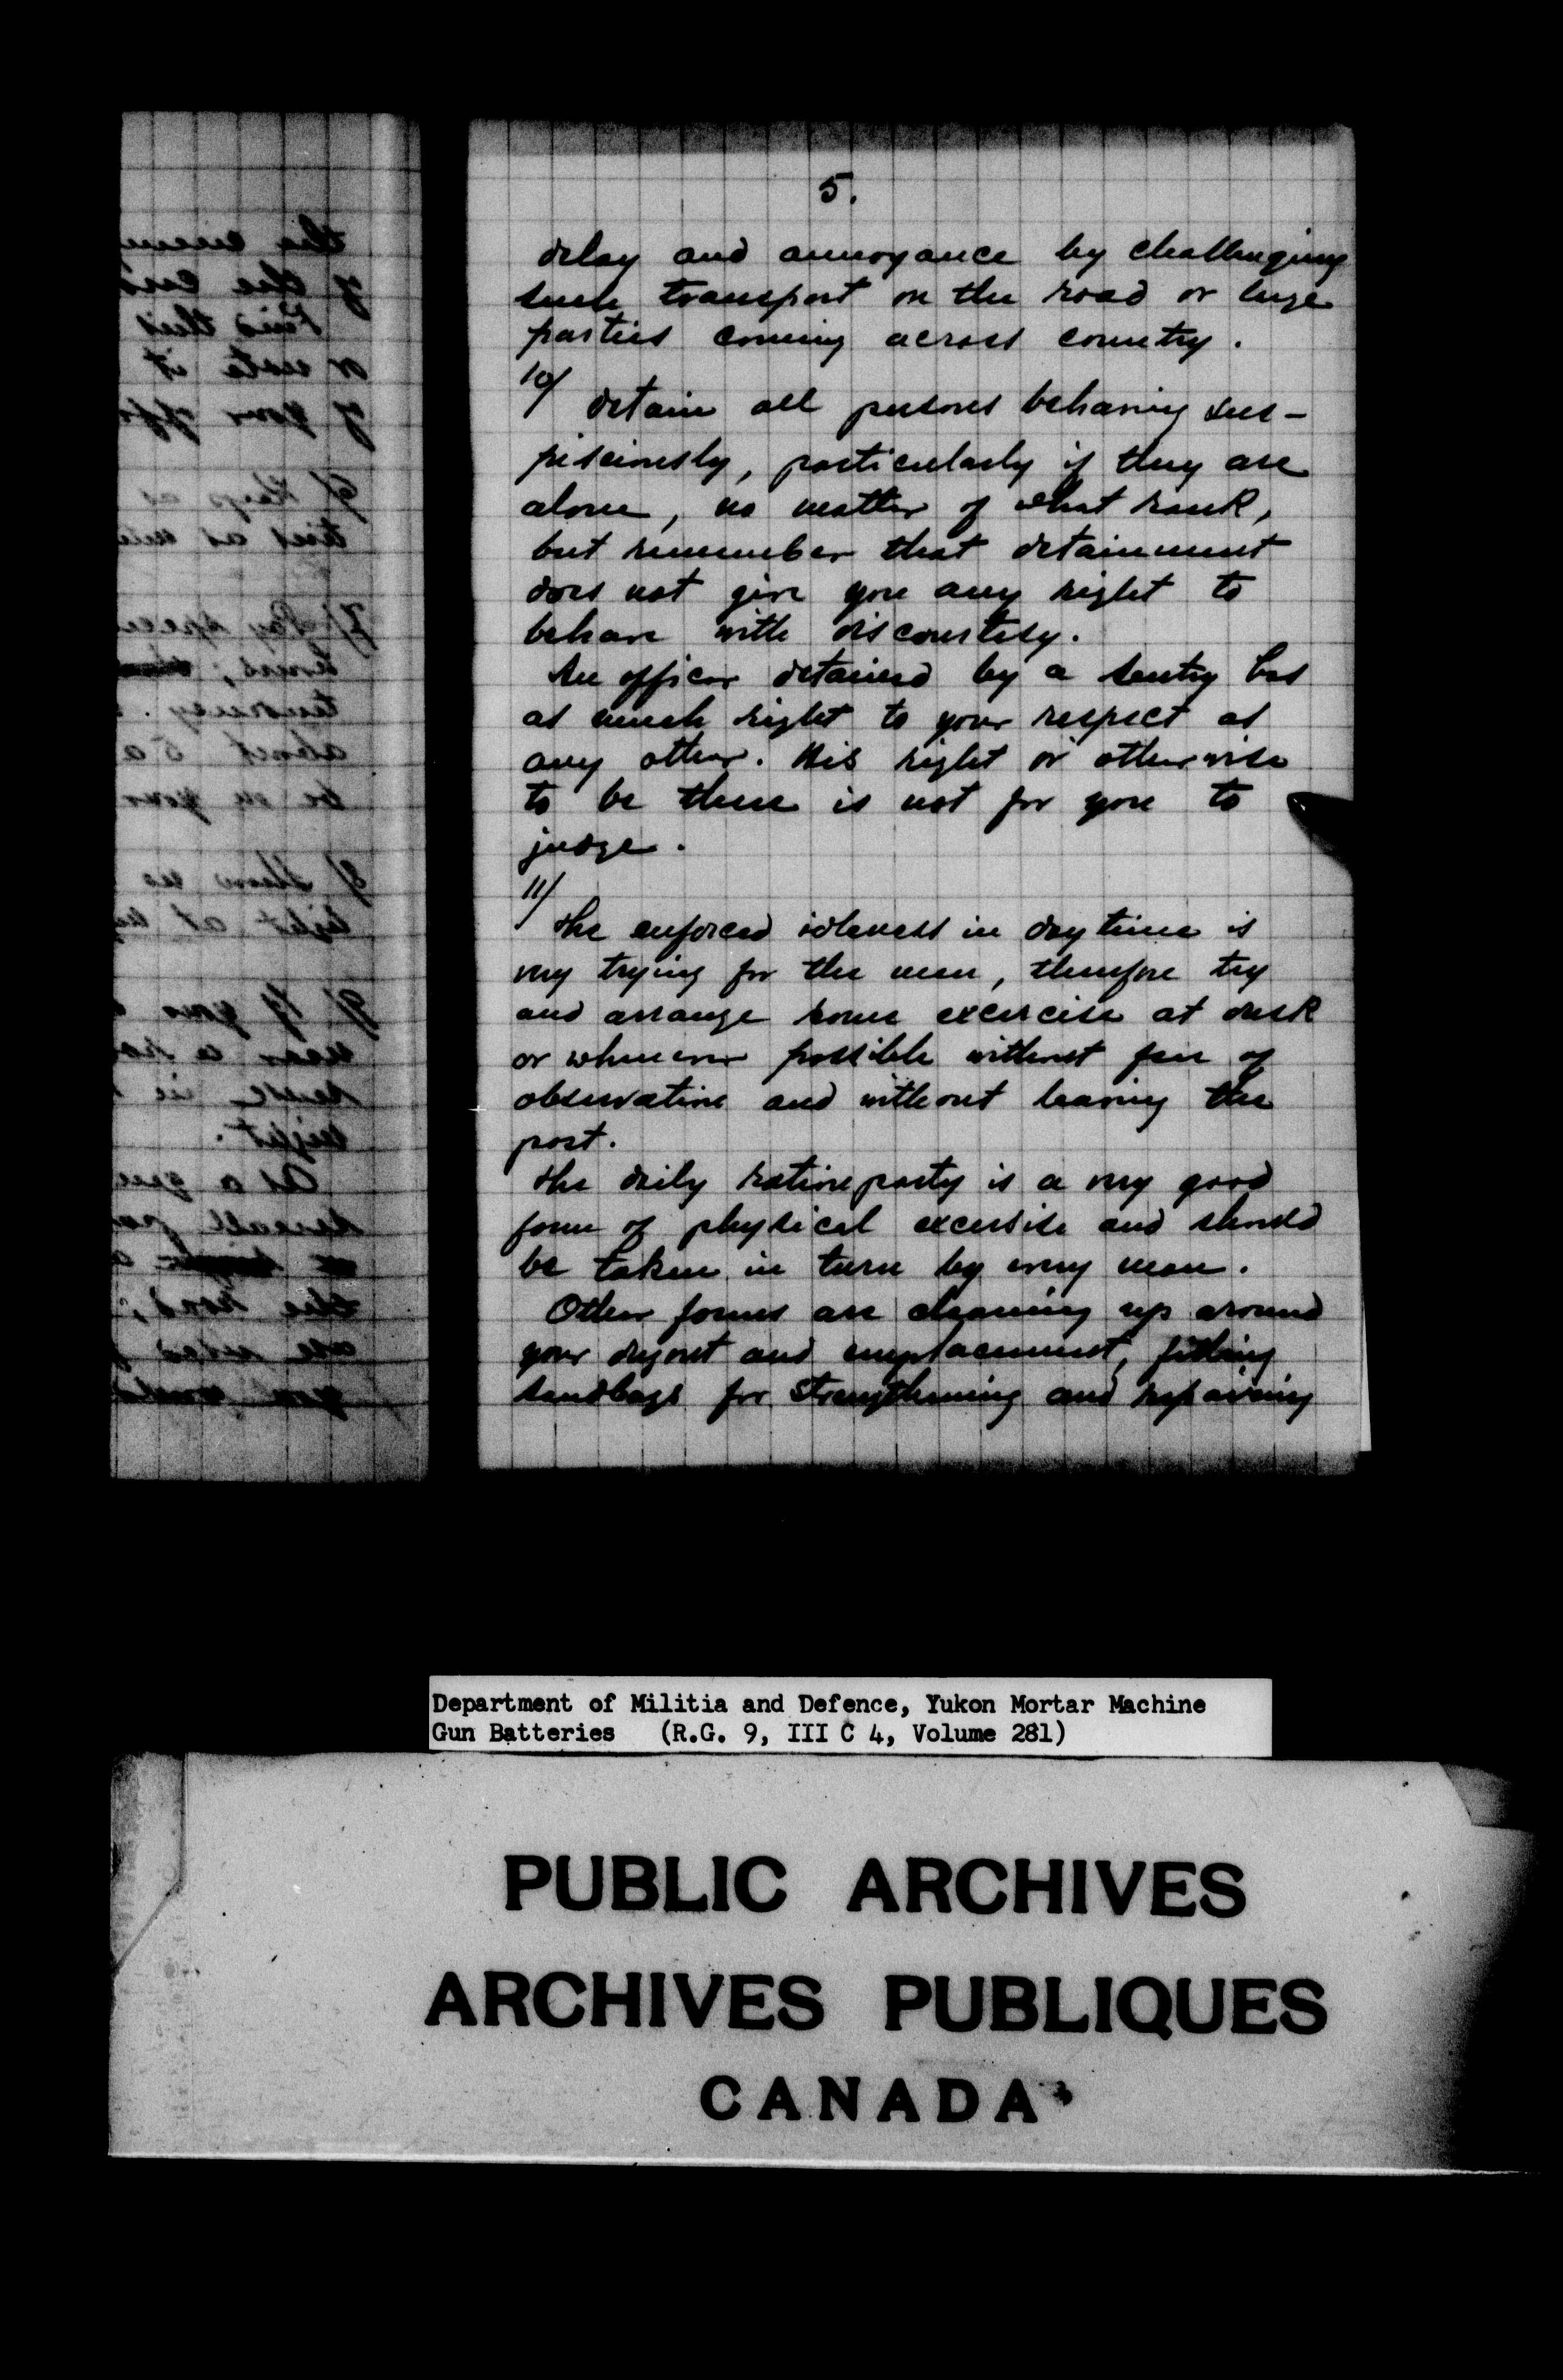 5.
delay and annoyance by challenging
such transport on the road or large
parties coming across country.
10/
Detain all persons behaving sus-
piciously, particularly if they are
alone, no matter of what rank,
but remember that detainment
does not give you any right to
behave with discourtesy.
An officer detained by a sentry has
as much right to your respect as
any other. His right or otherwise
to be there is not for you to
judge.
11/
The enforced idleness in daytime is
very trying for the men, therefore try
and arrange some excercise at dusk
or whenever possible without fear of
observation and without leaving the
post.
The daily ration party is a very good
form of physical excersise and should
be taken in turn by every man.
Other forms are cleaning up around
your dugout and emplacement, filling
sandbags for strengthening and repairing
Department of Militia and Defence, Yukon Mortar Machine
Gun Batteries (R.G. 9, III C 4, Volume 281)
PUBLIC ARCHIVES
ARCHIVES PUBLIQUES
CANADA